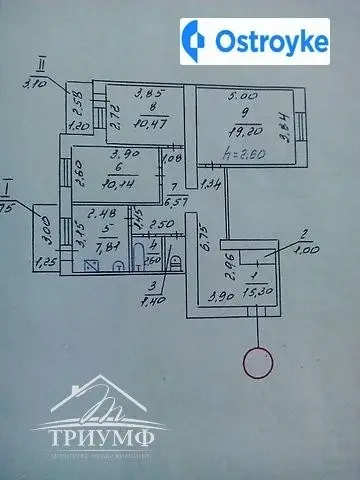 Ostroyke
II
3,10
2.58
1.20
3,85
8
2,72
10,47
5.00
9
19,20
3,84
h=2.60
3.90
6
2,60
10,14
1,08
7
6,57
1,34
I
75
3,00
1,25
2.48
5
3,15
7,81
1,45
2.50
4
2,60
3
1,40
6,75
2
1,00
2,96
1
15,30
3,90
ТРИУМФ
агентство недвижимости